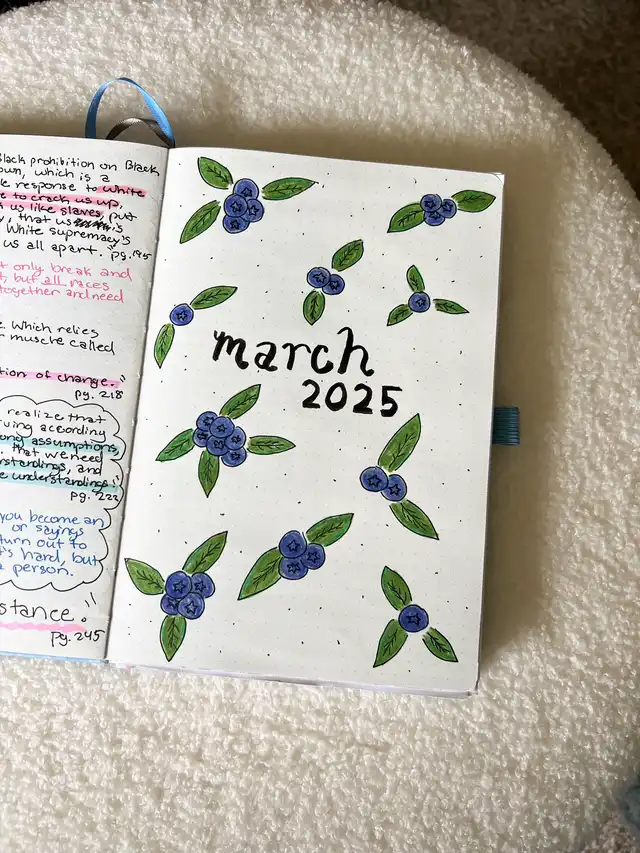 Black prohibition on Black
own, which is a
le response to white
e to crack us up,
us like slaves, put
, that us is
White supremacy's
us all apart." pg. 195
t only break and
t, but all races
together and need
e which relies
r muscle called
tion of change."
pg. 218
realize that
ruing according
ong assumptions,
that we need
rstandings, and
e understandings!"
pg. 222
you become an
or sayings
turn out to
t's hard, but
a person.
stance."
pg. 245
march
2025